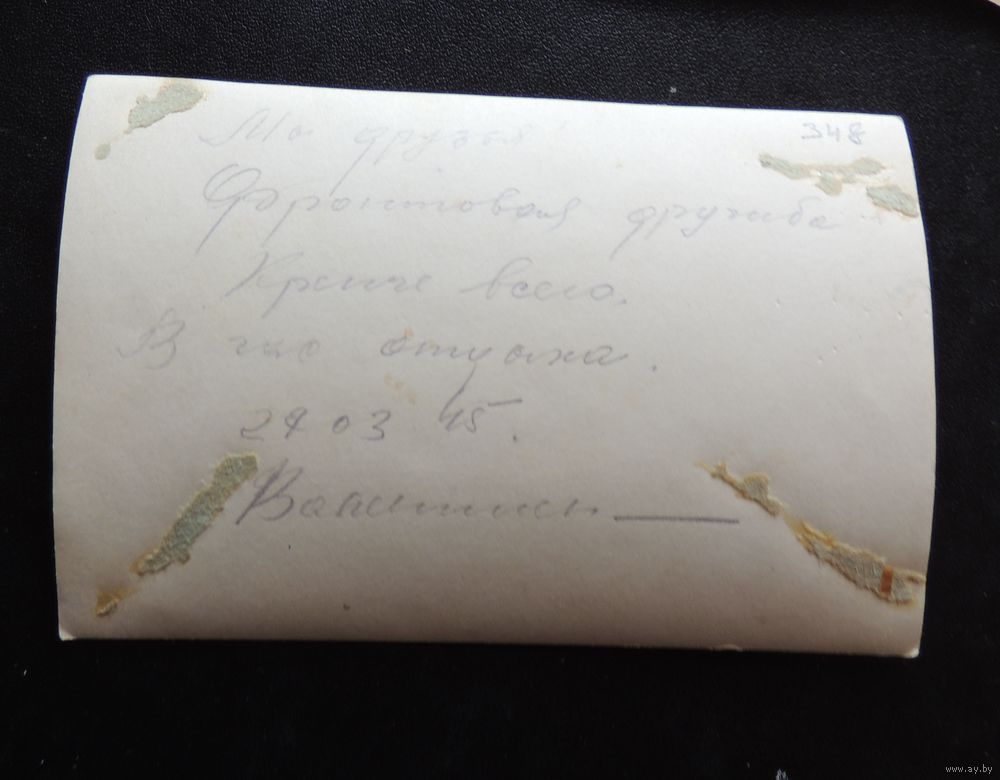 348
Мы друзья!
Фронтовая дружба
Крепче всего.
В час отдыха.
29 03 45.
Валентин
www.ay.by